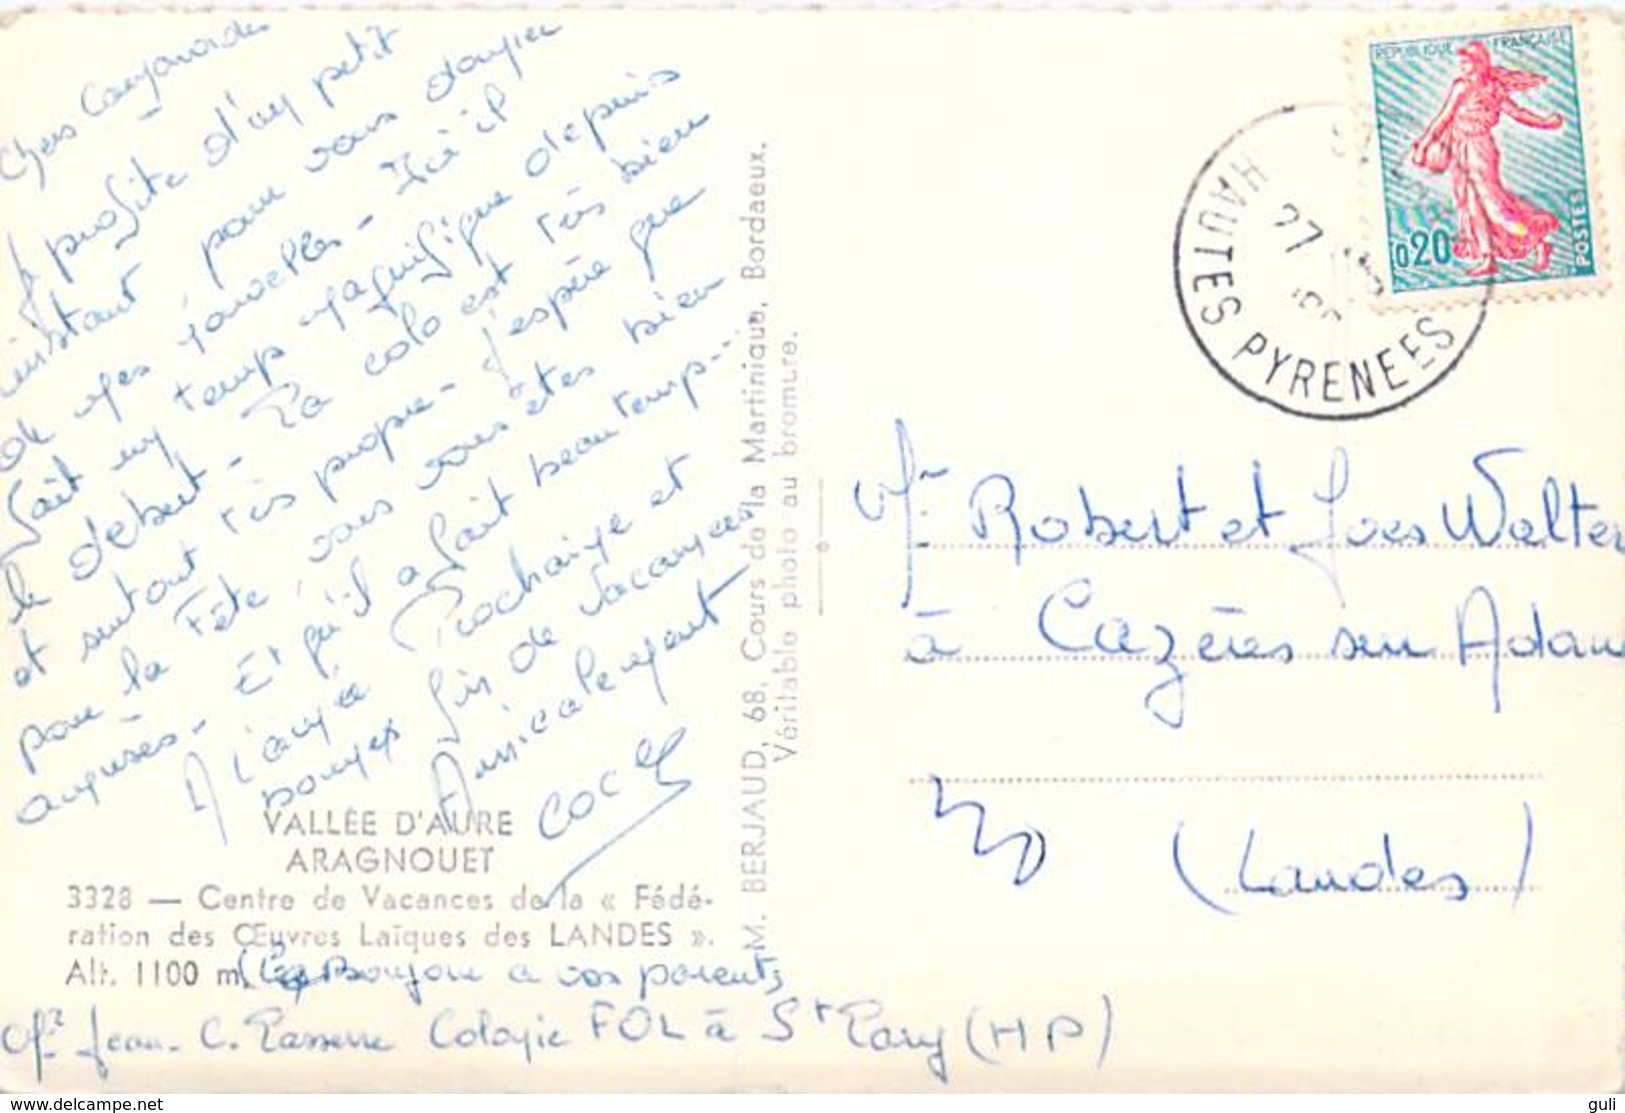 Chers Camarades
Je profite d'un petit
instant pour vous donner
de mes nouvelles - Ici il
fait un temps magnifique depuis
le debut - La colo est très bien
et surtout très propre - J'espère que
pour la Fête, vous vous êtes bien
amusés - Et qu'il a fait beau temp...
A l'année Prochaine et
bonnes fin de vacances
Amicalement
COCO
VALLÉE D'AURE
ARAGNOUET
3328 — Centre de Vacances de la « Fédé-
ration des Œuvres Laïques des LANDES ».
Alt. 1100 m.
Bonjour a vos parents
Mr Jean-C. Lasserre Colonie FOL à St Lary (HP)
M. BERJAUD, 68, Cours de la Martinique, Bordaeux.
Véritable photo au bromure.
REPUBLIQUE FRANÇAISE
0,20
POSTES
HAUTES PYRENEES
27
Mr Robert et Yves Walter
à Cazères sur Adour
(Landes)
guli
delcampe.net